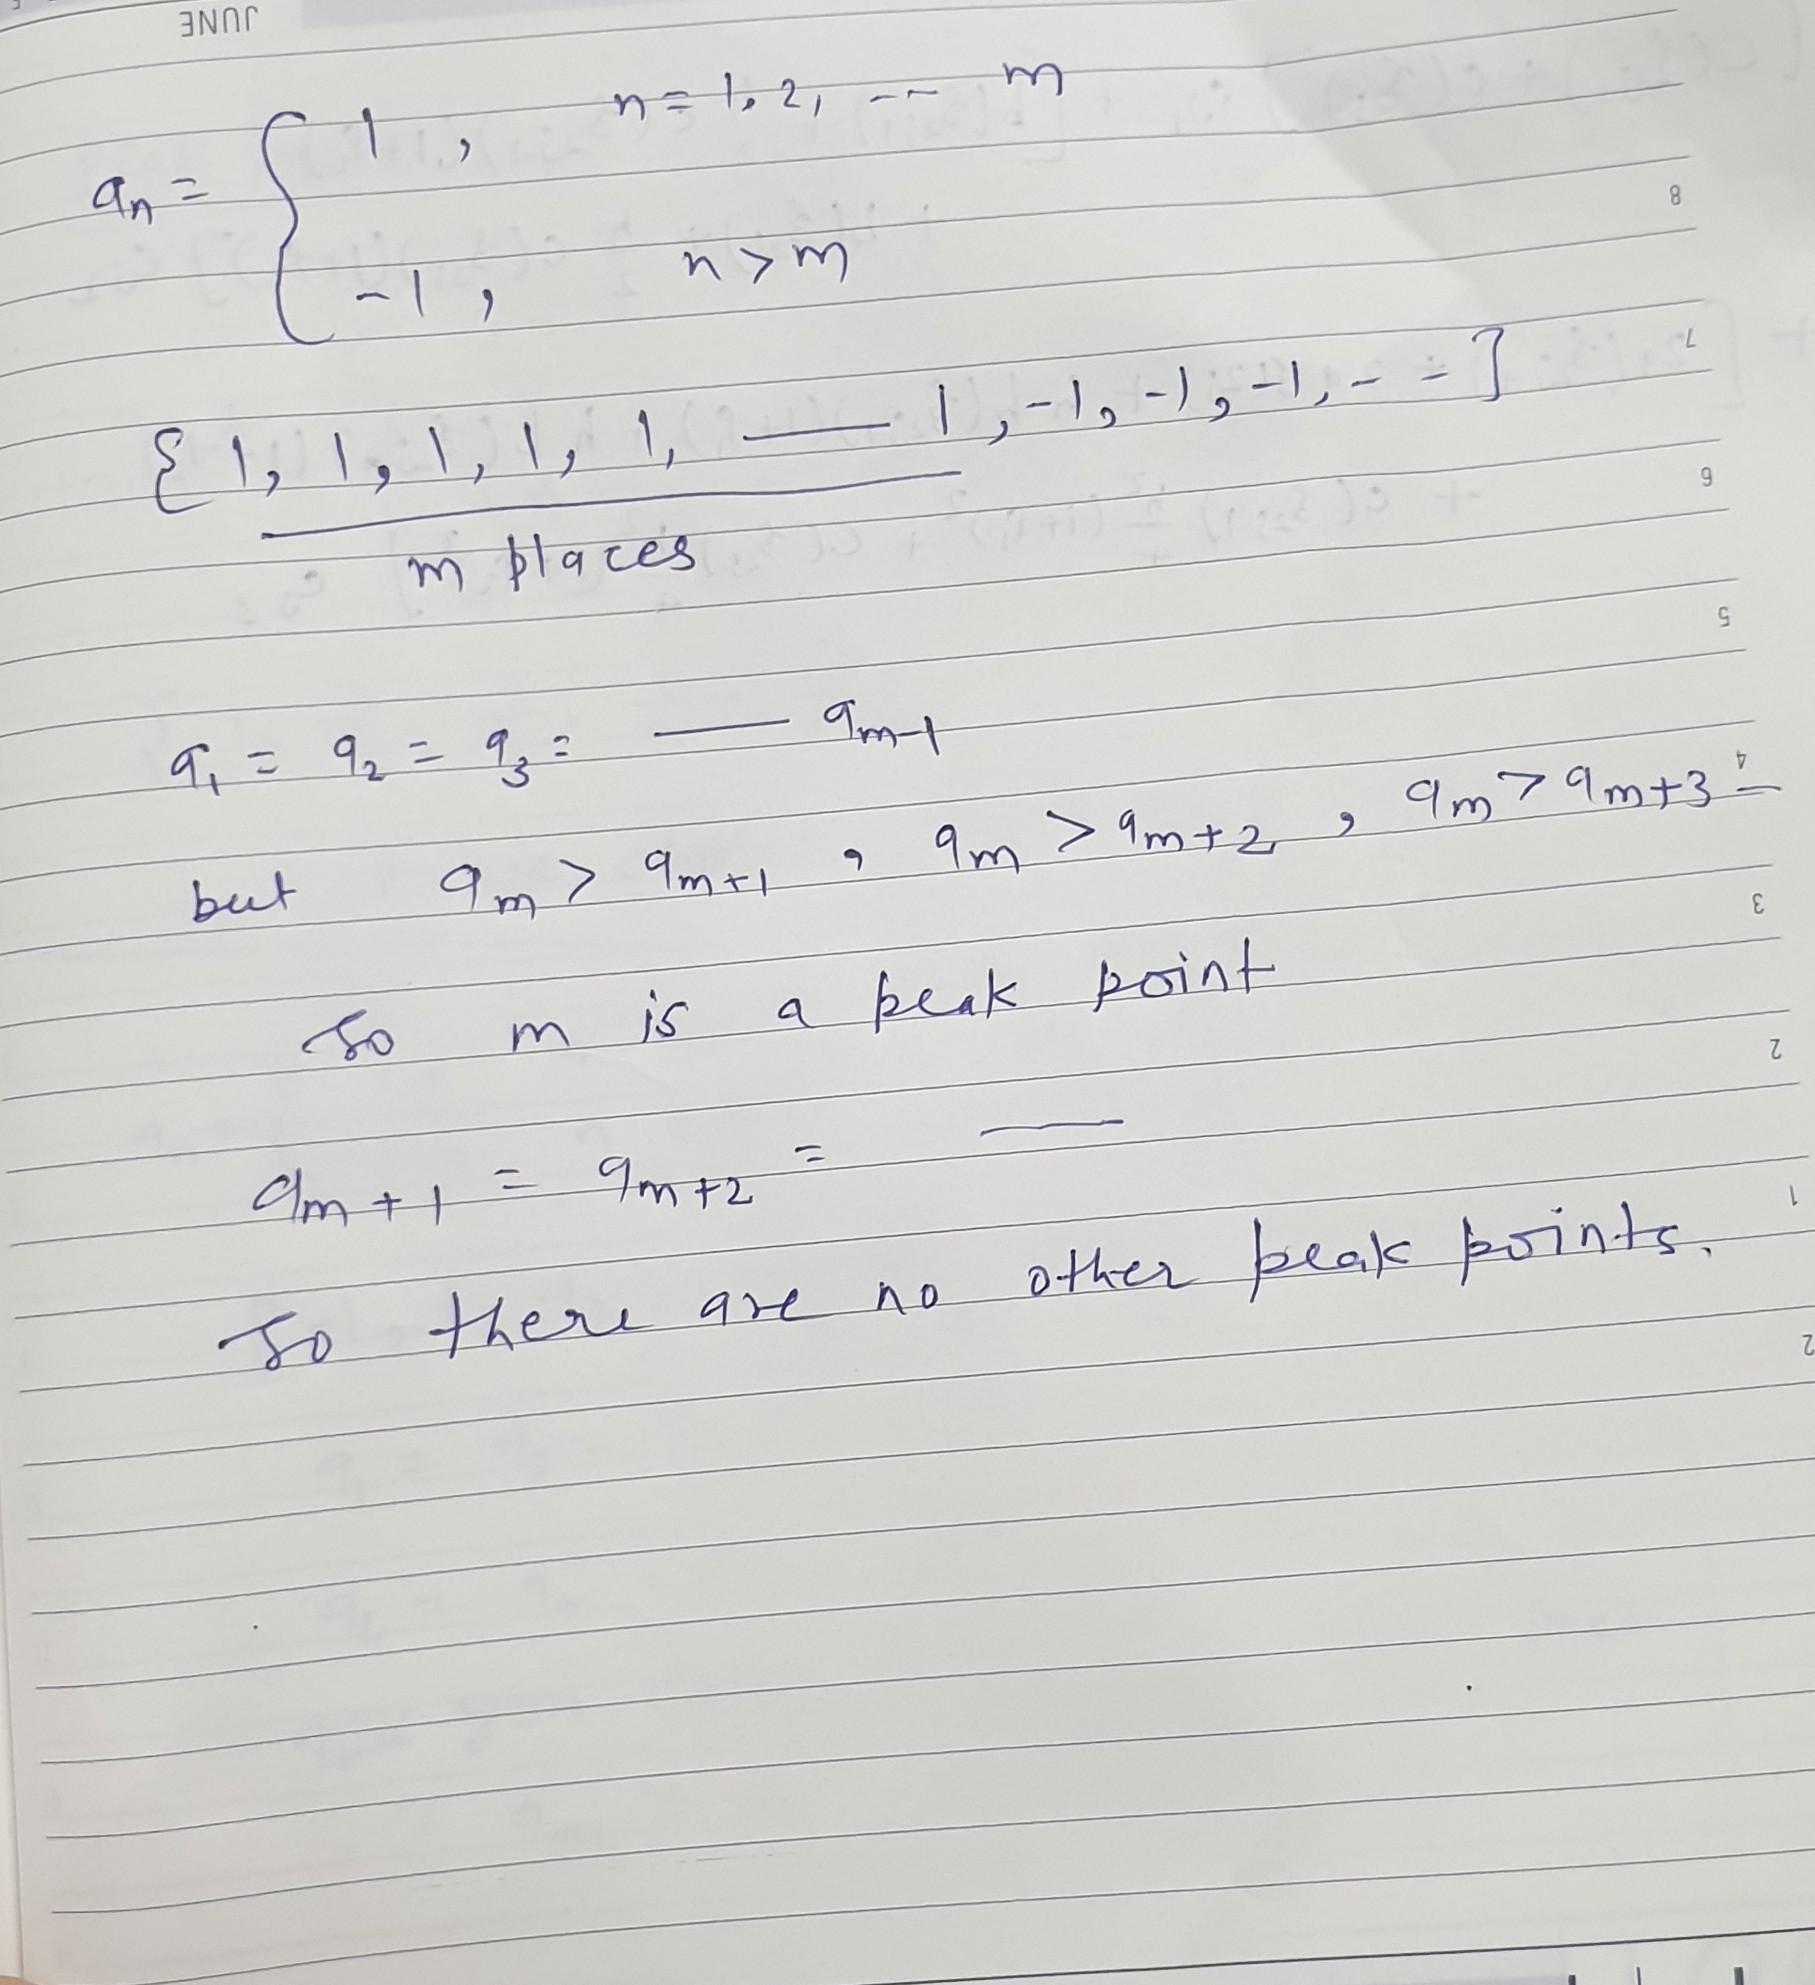 JUNE
aₙ = { 1 , n = 1, 2, -- m
-1 , n > m
8
7
{ 1, 1, 1, 1, 1, — 1, -1, -1, -1, - - }
6
m places
5
a₁ = a₂ = a₃ = — aₘ₋₁
4
but aₘ > aₘ₊₁ , aₘ > aₘ₊₂ , aₘ > aₘ₊₃ —
3
So m is a peak point
2
aₘ₊₁ = aₘ₊₂ = —
1
So there are no other peak points.
2